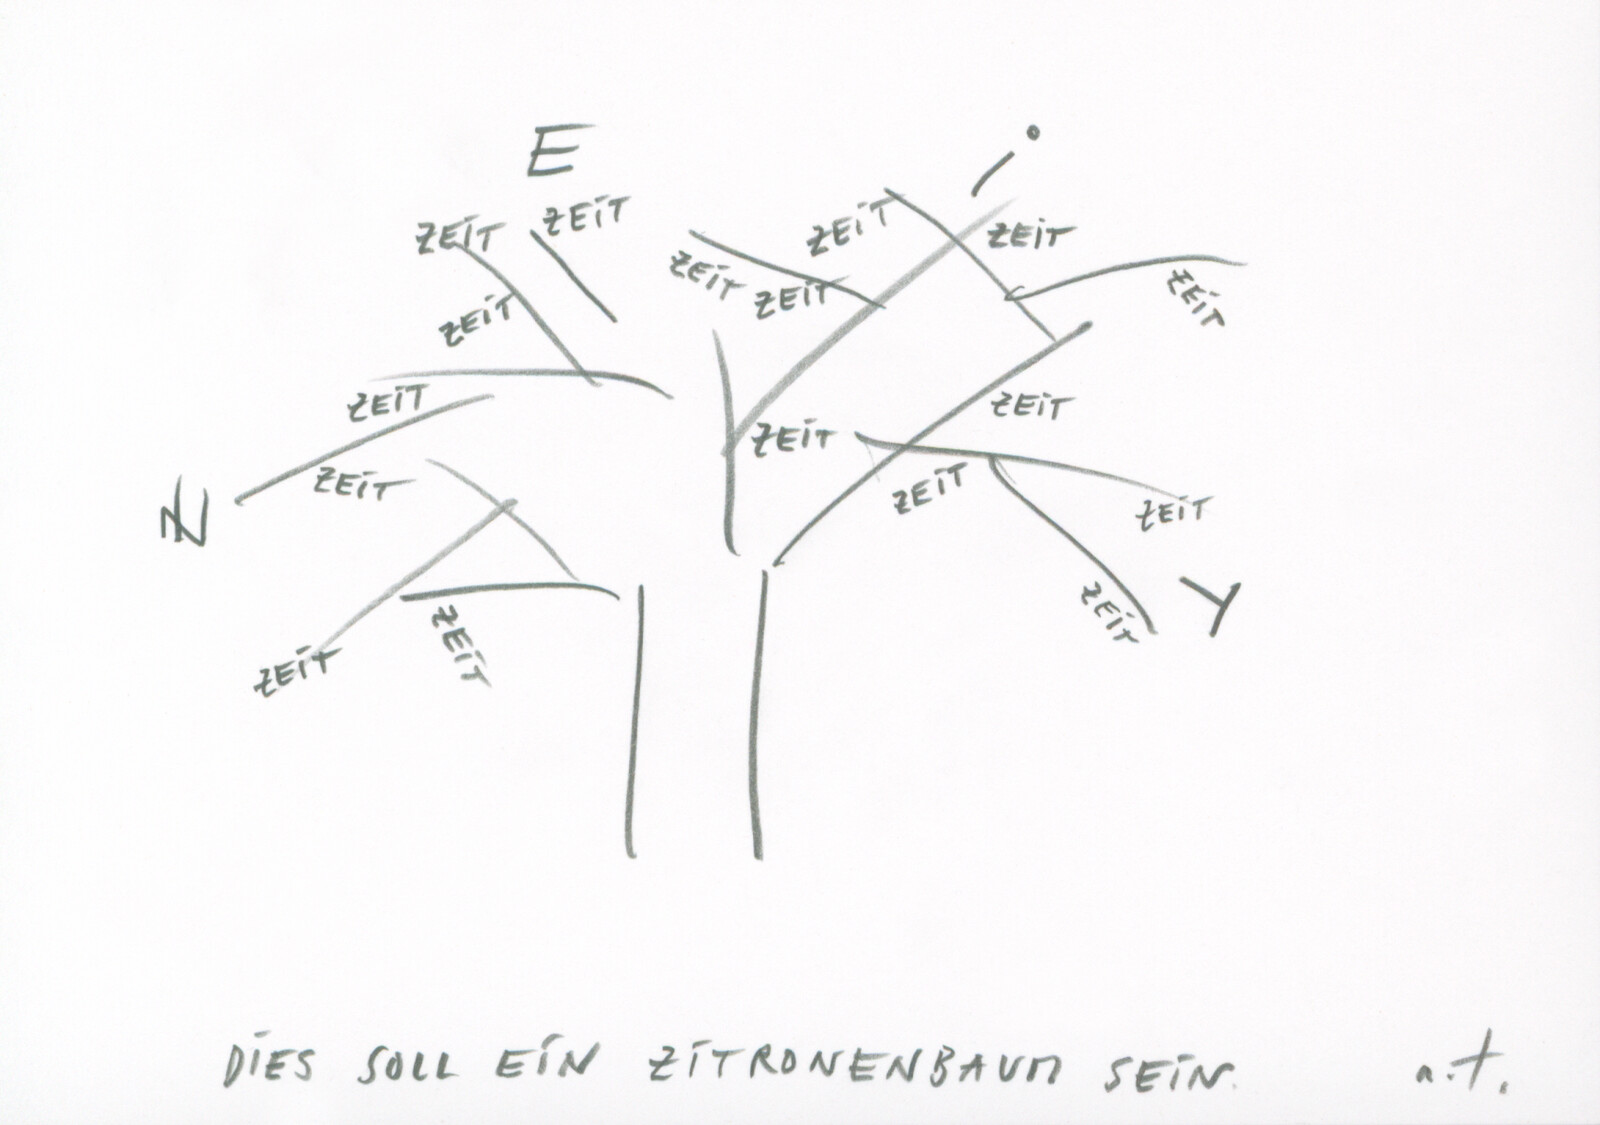 E
i
ZEiT
ZEiT
ZEiT
ZEiT
ZEiT
ZEiT
ZEiT
ZEiT
ZEiT
ZEiT
ZEiT
ZEiT
ZEiT
Z
ZEiT
ZEiT
T
ZEiT
ZEiT
DiES SOLL EiN ZiTRONENBAUM SEiN.